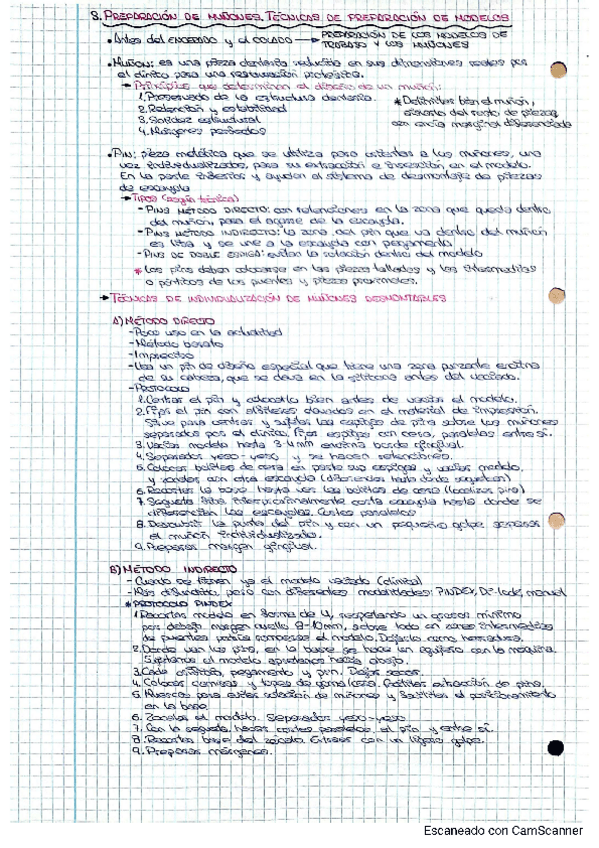 3. PREPARACIÓN DE MUÑONES. TÉCNICAS DE PREPARACIÓN DE MODELOS
• Antes del ENCERADO y el COLADO → PREPARACIÓN DE LOS MODELOS DE
TRABAJO Y LOS MUÑONES
• MUÑÓN: es una pieza dentaria reducida en sus dimensiones reales por
el clínico para una restauración protésica.
→ Principios que determinan el diseño de un muñón:
1. Preservado de la estructura dentaria.
2. Retención y estabilidad
3. Solidez estructural
4. Márgenes perfectos
* Delimitar bien el muñón,
del resto de piezas,
con encía marginal diferenciada
• PIN: pieza metálica que se utiliza para orientar a los muñones, una
vez individualizados, para su extracción e inserción en el modelo.
En la parte inferior y ayudan al sistema de desmontaje de piezas
de escayola
→ Tipos (según técnica)
- PINS MÉTODO DIRECTO: con retenciones en la zona que queda dentro
del muñón, para el agarre de la escayola.
- PINS MÉTODO INDIRECTO: la zona del pin que va dentro del muñón
es lisa y se une a la escayola con pegamento
- PINS DE DOBLE ESPIGA: evitan la rotación dentro del modelo
* Los pins deben colocarse en las piezas talladas y las intermedias
o pónticos de los puentes y piezas proximales.
→ TÉCNICAS DE INDIVIDUALIZACIÓN DE MUÑONES DESMONTABLES
A) MÉTODO DIRECTO
- Poco uso en la actualidad
- Método barato
- Impreciso
- Usa un pin de diseño especial que tiene una zona punzante encima
de su cabeza, que se clava en la silicona antes del vaciado.
- PROTOCOLO
1. Centrar el pin y colocarlo bien antes de vaciar el modelo.
2. Fijar el pin con alfileres clavados en el material de impresión.
Sirve para centrar y sujetar las espigas de pins sobre los muñones
separados por el clínico. Fijar espigas con cera, paralelas entre sí.
3. Vaciar modelo hasta 3-4 mm encima borde gingival.
4. Separador yeso-yeso y se hacen retenciones.
5. Colocar bolitas de cera en parte sup espigas y vaciar modelo
y zócalo con otra escayola
6. Recortar la base hasta ver las bolitas de cera (localizar pins)
7. Segueta interproximalmente corta escayola hasta donde se
diferencian las escayolas. Cortes paralelos
8. Descubrir la punta del pin y con un pequeño golpe separar
el muñón individualizado.
9. Repasar margen gingival.
B) MÉTODO INDIRECTO
- Cuando se tiene ya el modelo vaciado (clínica)
- Más difundido, pero con diferentes modalidades: PINDEX, Di-lock, manual
* PROTOCOLO PINDEX
1. Recortar modelo en forma de U, respetando un grosor mínimo
por debajo margen cuello 8-10mm, sobre todo en zonas intermedias
de puentes el modelo. Dejarlo como herradura.
2. Donde van los pins, en la base se hace un agujero con la máquina.
Sujetamos el modelo apretando hacia abajo.
3. Cada orificio, pegamento y pin. Dejar secar.
4. Colocar camisas y topes de goma/cera. Facilitar extracción de pins.
5. Muescas para evitar rotación de muñones y facilitar el posicionamiento
en la base.
6. Zocalar el modelo. Separador yeso-yeso
7. Con la segueta, hacer cortes paralelos al pin y entre sí.
8. Recortar base del zócalo. Extraer con un ligero golpe.
9. Preparar márgenes.
Escaneado con CamScanner